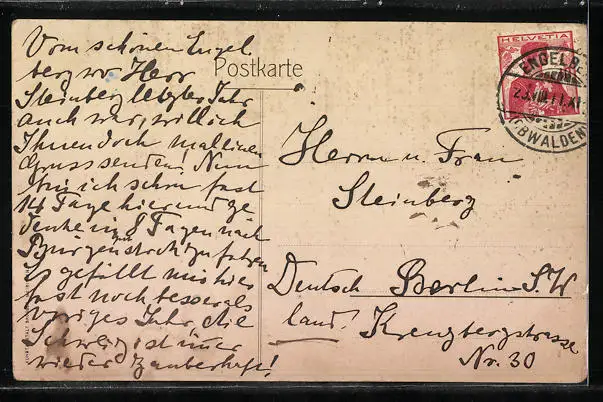 Vom schönen Engel
berg wo Herr
Steinberg letztes Jahr
auch war, will ich
Ihnen doch mal einen
Gruss senden! Nun
bin ich schon fast
14 Tage hier und ge
denke in 8 Tagen nach
Bürgenstock zu fahren
Es gefällt mir hier
fast noch besser als
voriges Jahr, die
Schweiz ist immer
wieder zauberhaft!
Postkarte
HELVETIA
ENGELBERG
(OBWALDEN)
Herrn u. Frau
Steinberg
Deutsch Berlin S.W
land! Kreuzbergstrasse
Nr. 30